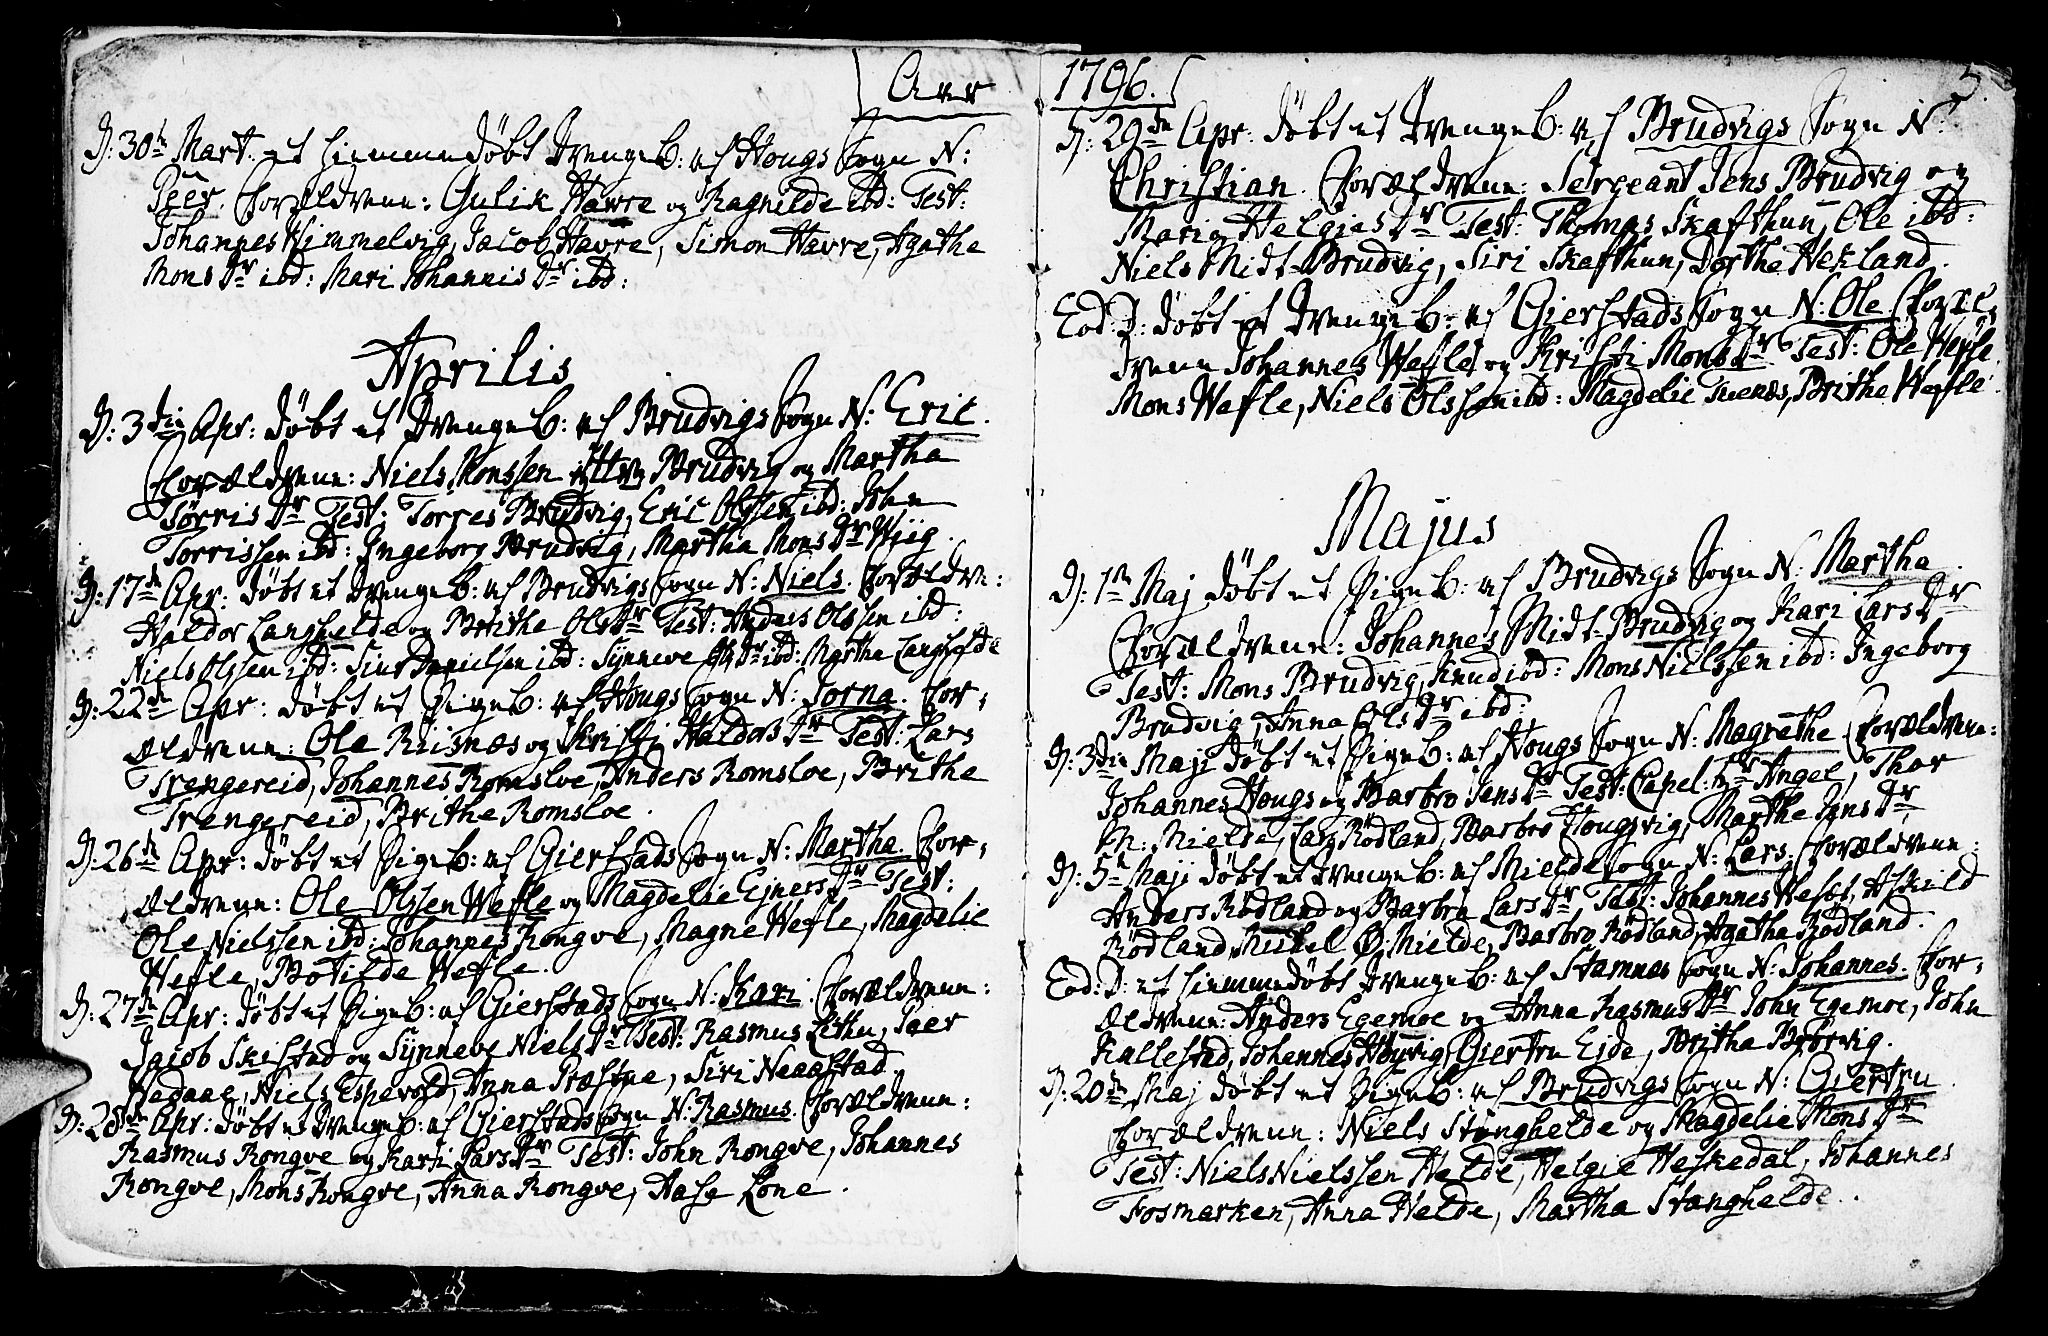 Aar
D: 30te Mart. et hiemmedöbt Drengeb: af Hougs Sogn N:
Peer. Forældrene: Gulik Havre og Ragnilde ibd: Test:
Johannes Himmelvig, Jacob Havre, Simon Havre, Agathe
Mons Dr ibd: Mari Johannis Dr ibd:
Aprilis
D: 3die Apr: döbt et Drengeb: af Brudvigs Sogn N: Eric.
Forældrene: Niels Monssen Brudvig og Martha
Törris Dr Test: Torres Brudvig, Eric Olssen ibd: John
Torrissen ibd: Ingeborg Brudvig, Martha Mons Dr Wiig.
D: 17de Apr: döbt et Drengeb: af Brudvigs Sogn N: Niels. Forældre:
Haldor Langhelde og Brithe Ols Dr Test: Anders Olssen ibd:
Niels Olssen ibd: Siur Danielssen ibd: Synneve Dr ibd: Martha Langhelde
D: 22de Apr: döbt et Pigeb: af Hougs Sogn N: Jorna. For-
ældrene: Ole Riisnæs og Kristi Haldors Dr Test: Lars
Trengereid, Johannes Romsloe, Anders Romsloe, Brithe
Trengereid, Brithe Romsloe.
D: 26de Apr: döbt et Pigeb: af Gierstads Sogn N: Martha. For-
ældrene: Ole Olssen Wefle og Magdelie Ejners Dr Test:
Ole Nielssen ibd: Johannes Rongve, Magne Wefle, Magdelie
Wefle, Botilde Wefle.
D: 27de Apr: döbt et Pigeb: af Gierstads Sogn N: Kari. Forældrene:
Jacob Skistad og Synneve Niels Dr Test: Rasmus Lithu, Peer
Hadaae, Niels Espevold, Anna Præstue, Siri Neaastad.
D: 28de Apr: döbt et Drengeb: af Gierstads Sogn N: Rasmus. Forældrene:
Rasmus Rongve og Kari Lars Dr Test: John Rongve, Johannes
Rongve, Mons Rongve, Anna Rongve, Aase Lone.
1796.
5.
D: 29de Apr: döbt et Drengeb: af Brudvigs Sogn N:
Christian. Forældrene: Sergeant Jens Brudvig og
Maria Helgies Dr Test: Thomas Skafthun, Ole ibd:
Niels Midt-Brudvig, Siri Skafthun, Dorthe Hekland.
Eod: D: döbt et Drengeb: af Gierstads Sogn N: Ole. Foræl-
drene Johannes Wefle og Kristi Mons Dr Test: Ole Wefle,
Mons Wefle, Niels Olssen ibd: Magdelie Tuenæs, Brithe Wefle.
Majus
D: 1te Maj döbt et Pigeb: af Brudvigs Sogn N: Martha.
Forældrene: Johannes Midt-Brudvig og Kari Lars Dr
Test: Mons Brudvig, Knud ibd: Mons Nielssen ibd: Ingeborg
Brudvig, Anna Ols Dr ibd:
D: 3die Maji döbt et Pigeb: af Hougs Sogn N: Magrethe. Forældrene:
Johannes Hougs og Barbro Jens Dr Test: Capel: Hr Angel, Thor
Mielde, Lars Rödland, Barbro Hougsvig, Marthe Jens Dr
D: 5te Maji döbt et Drengeb: af Mielde Sogn N: Lars. Forældrene:
Anders Rödland og Barbra Lars Dr Test: Johannes Weset, Askild
Rödland, Mickel Ö: Mielde, Barbro Rödland, Agatha Rödland.
Eod: D: et hiemmedöbt Drengeb: af Stamnes Sogn N: Johannes. For-
ældrene: Anders Egemoe og Anna Rasmus Dr John Egemoe, John
Kallestad, Johannes Höyvig, Giertru Eide, Britha Börvig.
D: 20de Maj döbt et Pigeb: af Brudvigs Sogn N: Giertru.
Forældrene: Niels Stanghelde og Magdelie Mons Dr
Test: Niels Nielssen Helde, Helgie Heskedal, Johannes
Fosmarken, Anna Helde, Martha Stanghelde.